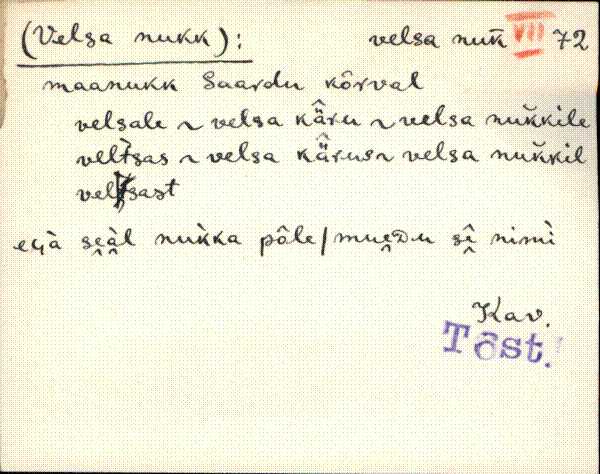 (Velsa nukk): velsa nuk̆ VII 72
maanukk Saardu kõrval
velsale ~ velsa kä̂ru ~ velsa nuk̆kile
veltsas ~ velsa kä̂rus ~ velsa nuk̆kil
veltsast
egà seàl nuk̀ka pôle / mueᴅu sê nimì
Kav.
Tõst.